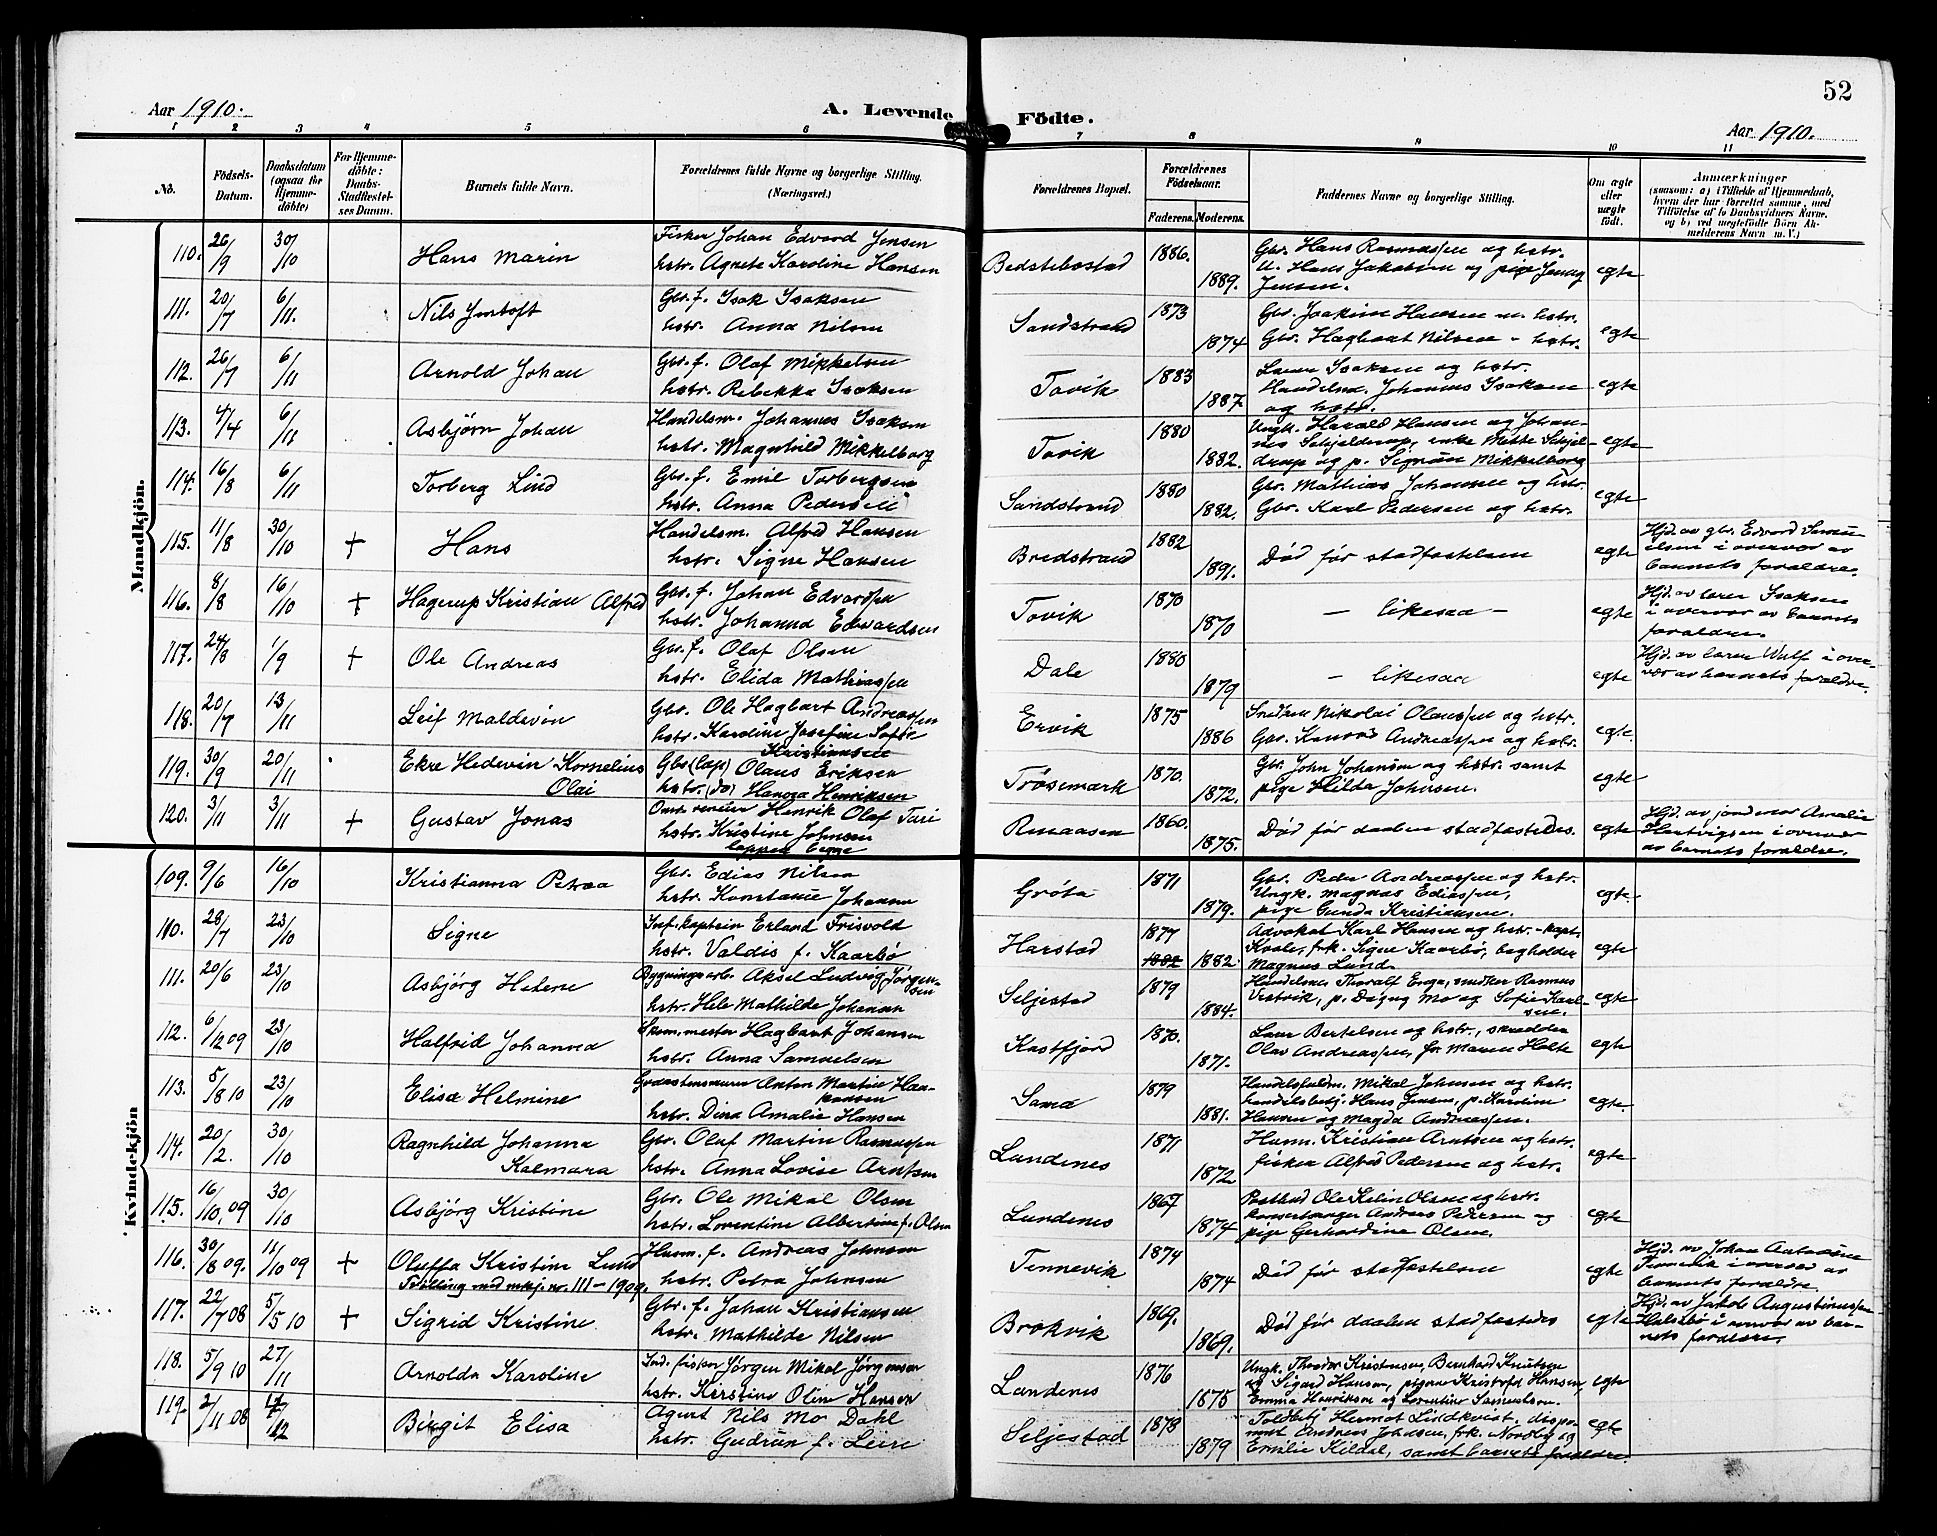 52
Aar 1910.
A. Levende Födte.
Aar 1910.
1 2 3 4 5 6 7 8 9 10 11
No. Födsels-Datum. Daabsdatum (ogsaa for Hjemmedöbte) For Hjemmedöbte: Daabs-Stadfæstelses Datum. Barnets fulde Navn. Forældrenes fulde Navne og borgerlige Stilling. (Næringsvei.) Forældrenes Bopæl. Forældrenes Födselsaar. Faderens. Moderens. Faddernes Navne og borgerlige Stilling. Om ægte eller uægte födt. Anmærkninger
Mandkjön.
110. 26/9 30/10 Hans Marin Fisker Johan Edvard Jensen
hstr. Agnete Karoline Hansen Bedstebostad 1886. 1889. Gbr. Hans Rasmussen og hstr.
U. Hans Jakobsen og pige Jenny
Jensen. egte
111. 20/7 6/11. Nils Jentoft Gbr. f. Isak Isaksen
hstr. Anna Nilsen Sandstrand 1873 1874 Gbr. Joakim Hansen m. hstr.
Gbr. Hagbart Nilsen - hstr. egte
112. 26/7 6/11 Arnold Johan Gbr. f. Olaf Mikkelsen
hstr. Rebekka Isaksen Tovik 1883 1887 Lærer Isaksen og hstr.
Handelsm. Johannes Isaksen
og hstr. egte
113. 4/4 6/11 Asbjørn Johan Handelsm. Johannes Isaksen
hstr. Magnhild Mikkelborg Tovik 1880 1882. Ungk. Harald Hansen og Johan-
nes Schjelderup, enke Mette Schjel-
drup og p. Signun Mikkelborg egte
114. 16/8 6/11 Torberg Lind Gbr. f. Emil Torbergsen
hstr. Anna Pedersen Sandstrand 1880 1882. Gbr. Mathias Johansen og hstr.
Gbr. Karl Pedersen og hstr. egte
115. 11/8 30/10 + Hans Handelsm. Alfred Hansen
hstr. Signe Hansen Bredstrand 1882 1891. Død før stadfæstelsen egte Hjd. av gbr. Edvard Samu-
elsen i overvær av
barnets foraldre.
116. 8/8 16/10 + Hagerup Kristian Alfred Gbr. f. Johan Edvardsen
hstr. Johanna Edvardsen Tovik 1870 1870 - likesaa - egte Hjd. av lærer Isaksen
i overvær av barnets
foraldre.
117. 24/8 1/9 + Ole Andreas Gbr. f. Olaf Olsen
hstr. Elida Mathiassen Dale 1880 1879 - likesaa egte Hjd. av lærer Wulf i over-
vær av barnets foraldre.
118. 20/7 13/11 Leif Maldevin Gbr. Ole Hagbart Andreassen
hstr. Karoline Josefine Sofie
Kristiansen Ervik 1875 1886 Snedker Nikolai Olaussen og hstr.
Gbr. Konrad Andreassen og hstr. egte.
119. 30/9 20/11 Ekre Hedevin Kornelius
Olai Gbr (lap) Olaus Eriksen
hstr. (do) Hanna Henriksen Trøsemark 1870. 1872. Gbr. John Johansen og hstr. samt
pige Hilda Johnsen. egte
120. 3/11 3/11 + Gustav Jonas Henrik Olaf Turi
hstr. Kristine Johnsen
lapper begge Rensaasen 1860. 1875. Død før daaben stadfæstedes. egte Hjd. av jordmor Amalie
Hartvigsen i overvær
av barnets foraldre.
Kvindekjön
109. 9/6 16/10 Kristianna Petrea Gbr. Edias Nilsen
hstr. Konstanse Johanna Grøta 1871 1879. Gbr. Peder Andreassen og hstr.
Ungk. Magnus Ediassen,
pige Gunda Kristiansen. egte
110. 28/7 23/10 Signe Inf. kaptein Erland Frisvold
hstr. Valdis f. Kaarbø Harstad 1877 1882 1882. Advokat Karl Hansen og hstr. - kapt.
Kvale, frk. Signe Kaarbø, bogholder
Magnus Lund. egte
111. 20/6 23/10 Asbjörg Helene Bygningsarb. Aksel Ludvig Jörgen-
sen
hstr. Hele Mathilde Johansen Seljestad 1879 1884. Handelsm. Thoralf Enga, snedker Rasmus
Vestvik, p. Dagny Mo og Sofie Karl-
sen. egte
112. 6/12 09 23/10 Halfrid Johanna Skom. mester Hagbart Johansen
hstr. Anna Samuelsen Kastfjord 1870. 1871. Lærer Bertelsen og hstr., skrædder
Olav Andreassen, fr. Maren Holte egte
113. 5/8 10 23/10 Elisa Helmine Graastensmurer Anton Martin Haa-
konsen
hstr. Dina Amalie Hansen Sama 1879 1881. Handelsfuldm. Mikal Johnsen og hstr.
handelsbetj. Hans Jensen, p. Karoline
Hansen og Magda Andreassen. egte
114. 20/2. 30/10 Ragnhild Johanna
Kalmara Gbr. Oluf Martin Rasmussen
hstr. Anna Lovise Arntsen Lundenes 1871 1872 Husm. Kristian Arntsen og hstr.
fisker Alfred Pedersen og hstr. egte
115. 16/10 09 30/10 Asbjörg Kristine Gbr. Ole Mikal Olsen
hstr. Lorentine Albertine f. Olsen Lundenes 1867 1874 Postbud Ole Kelin Olsen og hstr.
Andreas Pedersen og
pige Gerhardine Olsen. egte
116. 30/8 09. 11/10 09 + Oluffa Kristine Lund
Tvilling med mkj. nr. 111 - 1909. Husm. f. Andreas Johnsen
hstr. Petra Johnsen Tennevik 1874 1874 Død før stadfæstelsen egte Hjd. av Johan Antonsen
Tennevik i overvær av
barnets foraldre.
117. 22/7 08 5/5 10 + Sigrid Kristine Gbr. f. Johan Kristiansen
hstr. Mathilde Nilsen Brokvik 1869. 1869. Død før daaben stadfæstedes egte Hjd. av Jakob Augustinussen
Halsebø i overvær av bar-
nets foraldre.
118. 5/9 10 27/11 Arnolda Karoline Ind. fisker Jørgen Mikal Jørgensen
hstr. Kirstine Oline Hansen Lundenes 1876 1875 Ungk. Theodor Kristensen, Bernhard Knutsen
og Sigurd Hansen, pigerne Kristofa Hansen,
Emma Henriksen og Lorentine Samuelsen. egte
119. 2/11 08 17/12 Birgit Elisa Agent Nils Mo Dahl
hstr. Gudrun f. Leire Seljestad 1878 1879 Toldbetj Hermot Lindkvist, dispo-
nent Andreas Johnsen, frk. Nordby og
Emilie Kildal, samt barnets foraldre. egte